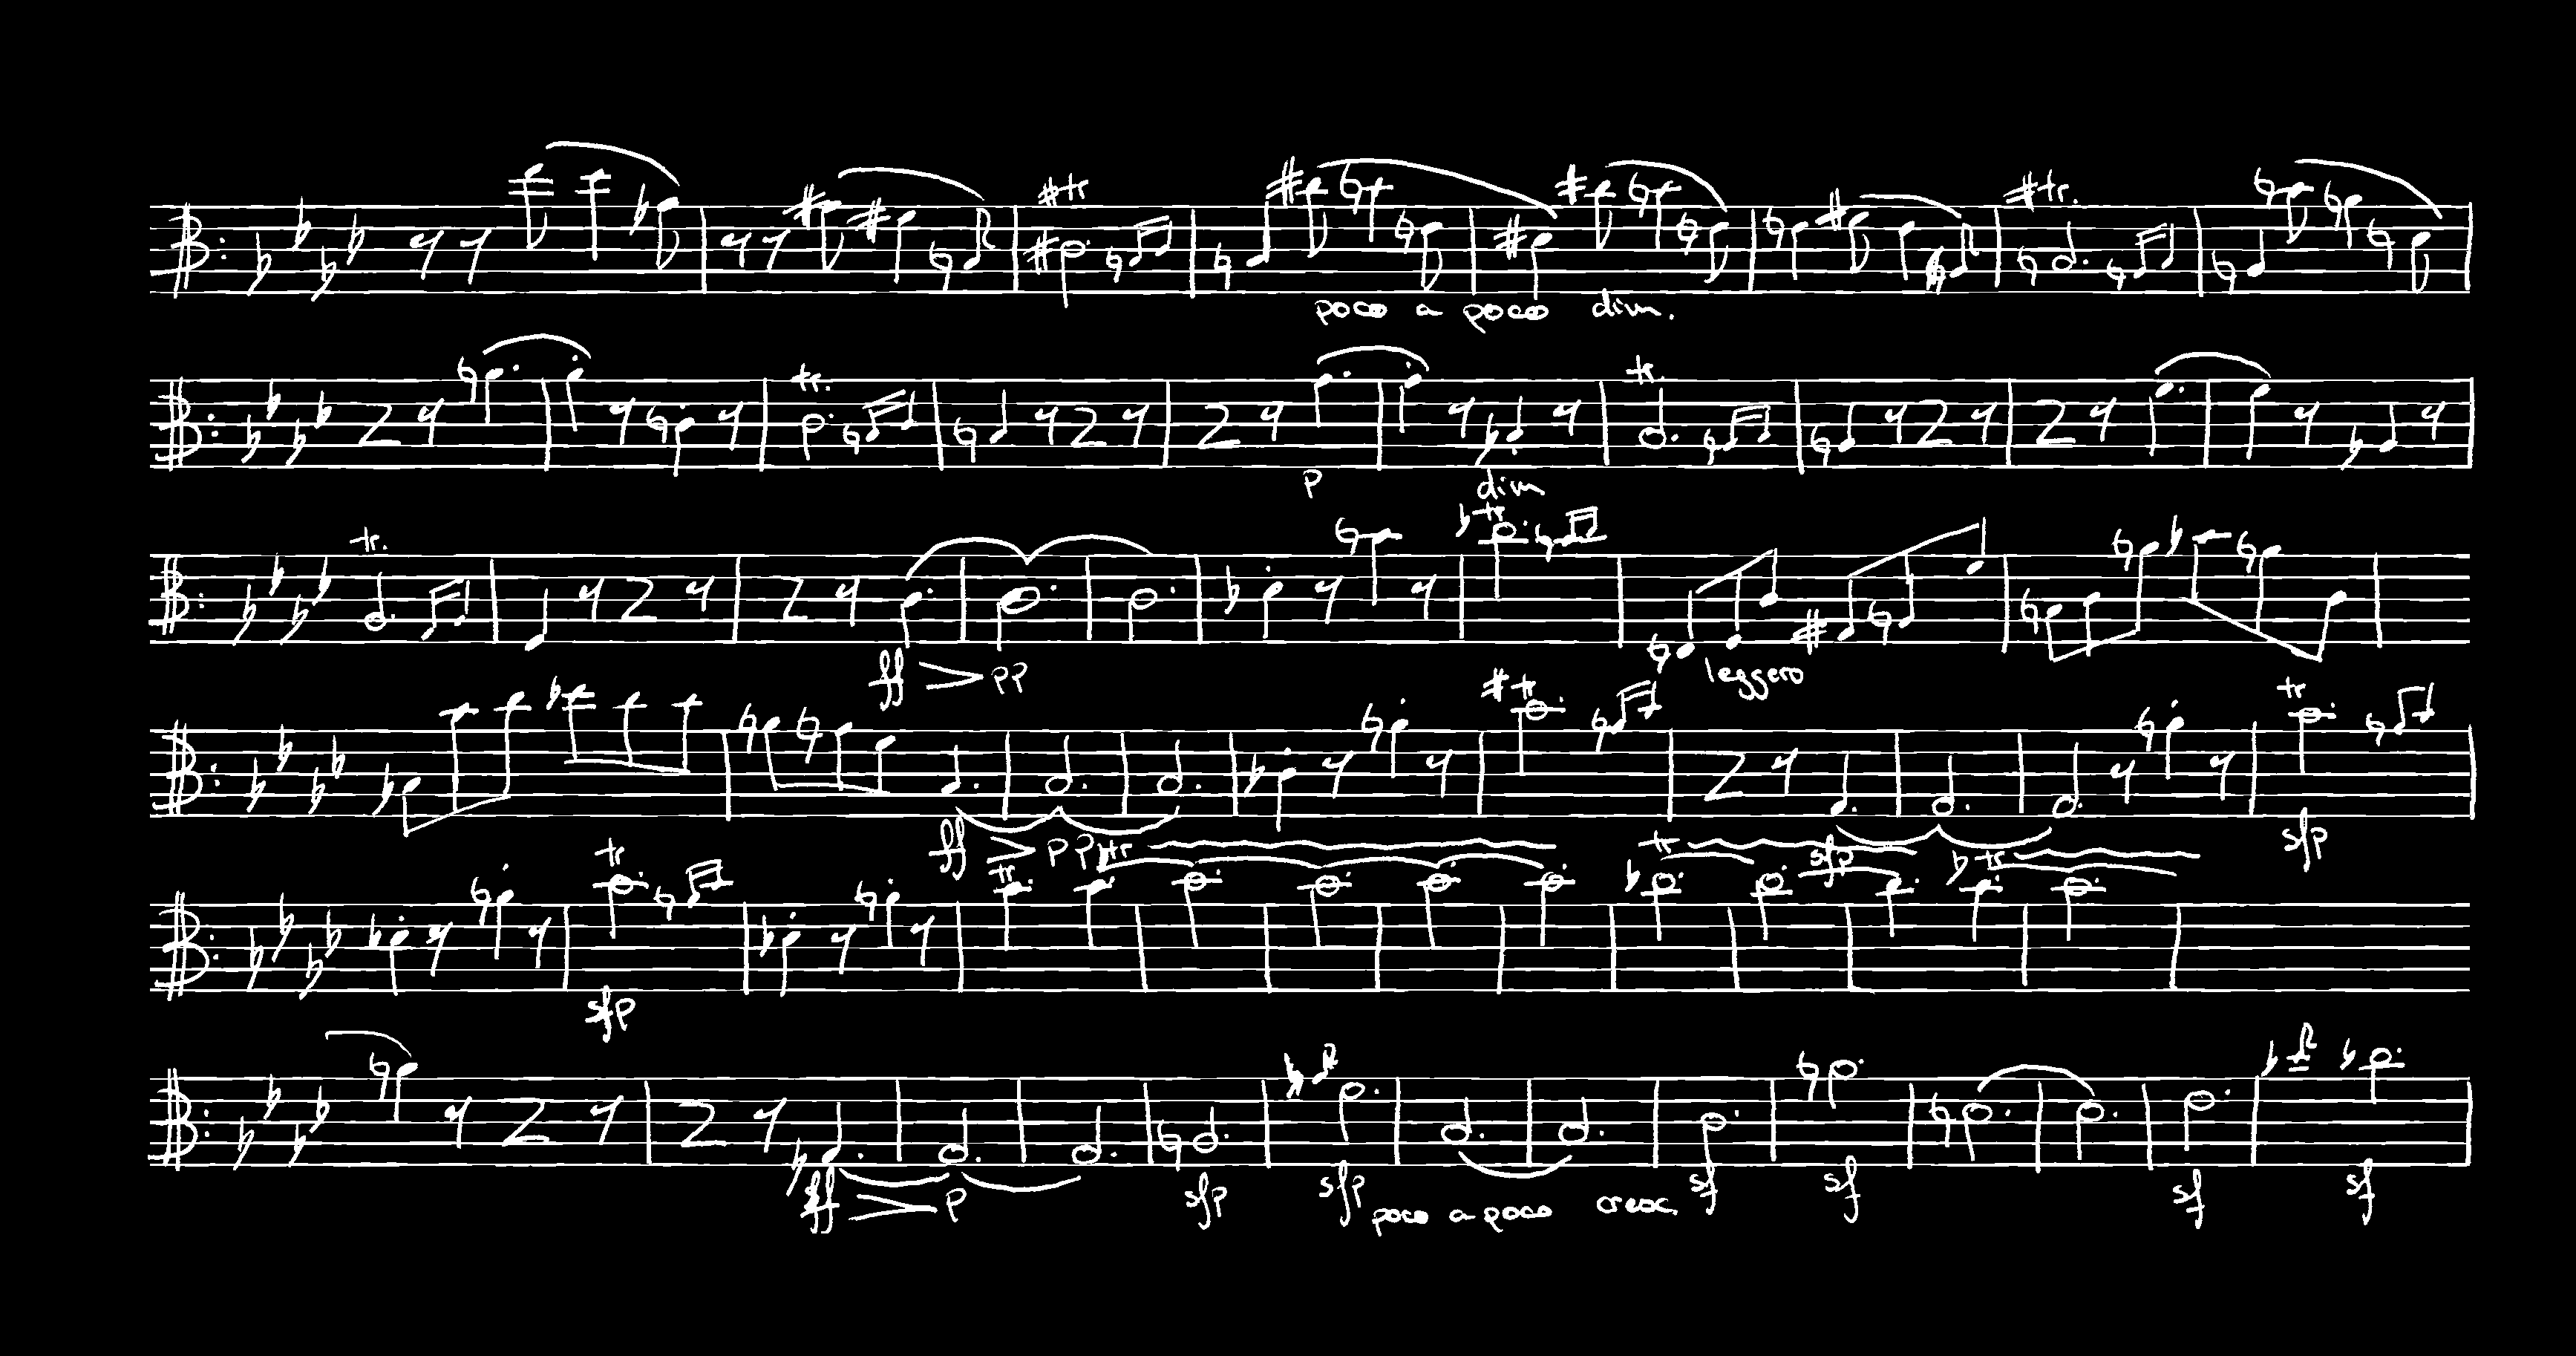 #tr #tr.
poco a poco dim.
tr. tr.
p dim
tr. tr
ff pp leggero
#tr tr
ff pp tr tr sfp tr sfp
tr tr
sfp
ff p sfp sfp poco a poco cresc. sf sf sf sf